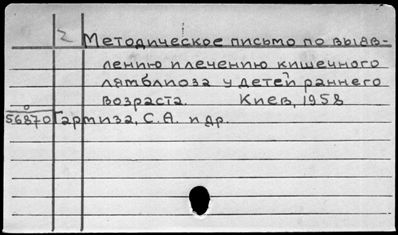 2 Методическое письмо по выяв-
лению и лечению кишечного
лямблиоза у детей раннего
возраста. Киев, 1958
56870 Гармиза, С.А. и др.